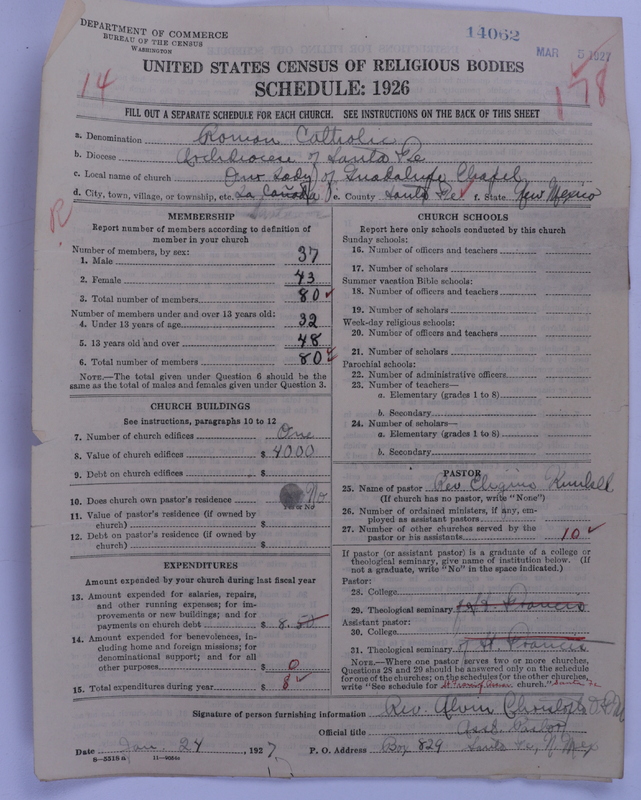 DEPARTMENT OF COMMERCE
BUREAU OF THE CENSUS
WASHINGTON
14062
MAR 5 1927
UNITED STATES CENSUS OF RELIGIOUS BODIES
SCHEDULE: 1926
14
178
FILL OUT A SEPARATE SCHEDULE FOR EACH CHURCH. SEE INSTRUCTIONS ON THE BACK OF THIS SHEET
a. Denomination Roman Catholic
b. Diocese Archdiocese of Santa Fe
c. Local name of church Our Lady of Guadalupe Chapel
d. City, town, village, or township, etc. La Cañada e. County Santa Fe f. State New Mexico
R
MEMBERSHIP
Report number of members according to definition of
member in your church
Number of members, by sex:
1. Male 37
2. Female 43
3. Total number of members 80
Number of members under and over 13 years old:
4. Under 13 years of age 32
5. 13 years old and over 48
6. Total number of members 80
NOTE.—The total given under Question 6 should be the
same as the total of males and females given under Question 3.
CHURCH BUILDINGS
See instructions, paragraphs 10 to 12
7. Number of church edifices One
8. Value of church edifices $ 4000
9. Debt on church edifices $
10. Does church own pastor's residence No
Yes or No
11. Value of pastor's residence (if owned by
church) $
12. Debt on pastor's residence (if owned by
church) $
EXPENDITURES
Amount expended by your church during last fiscal year
13. Amount expended for salaries, repairs,
and other running expenses; for im-
provements or new buildings; and for
payments on church debt $ 8.50
14. Amount expended for benevolences, in-
cluding home and foreign missions; for
denominational support; and for all
other purposes $ 0
15. Total expenditures during year $ 8
CHURCH SCHOOLS
Report here only schools conducted by this church
Sunday schools:
16. Number of officers and teachers
17. Number of scholars
Summer vacation Bible schools:
18. Number of officers and teachers
19. Number of scholars
Week-day religious schools:
20. Number of officers and teachers
21. Number of scholars
Parochial schools:
22. Number of administrative officers
23. Number of teachers—
a. Elementary (grades 1 to 8)
b. Secondary
24. Number of scholars—
a. Elementary (grades 1 to 8)
b. Secondary
PASTOR
25. Name of pastor Rev. Eligius Kunkel
(If church has no pastor, write "None")
26. Number of ordained ministers, if any, em-
ployed as assistant pastors
27. Number of other churches served by the
pastor or his assistants 10
If pastor (or assistant pastor) is a graduate of a college or
theological seminary, give name of institution below. (If
not a graduate, write "No" in the space indicated.)
Pastor:
28. College
29. Theological seminary of St. Francis
Assistant pastor:
30. College
31. Theological seminary of St. Francis
NOTE.—Where one pastor serves two or more churches,
Questions 28 and 29 should be answered only on the schedule
for one of the churches; on the schedules for the other churches,
write "See schedule for church." Santa Fe
Signature of person furnishing information Rev. Alvin
Official title Asst. Pastor
Date Jan. 24, 1927 P. O. Address Box 829 Santa Fe, N. Mex
8—5318 a